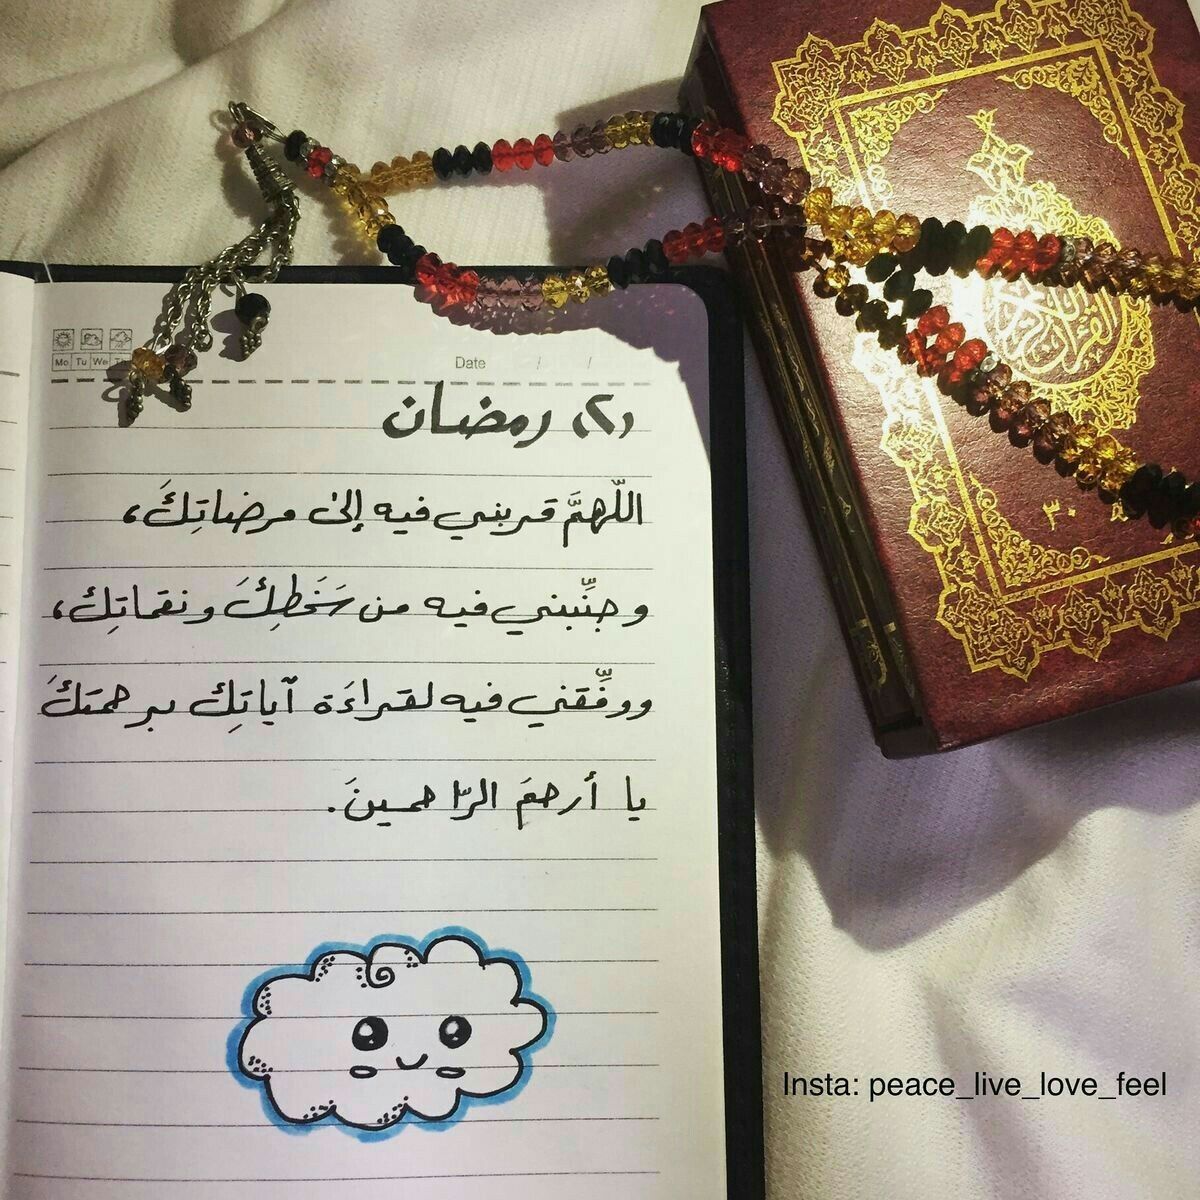 Mo Tu We Th
Date / /
(٢) رمضان
اللّهمَّ قربني فيه إلىٰ مرضاتِكَ،
وجنِّبني فيه من سَخَطِكَ ونقماتِكَ،
ووفِّقني فيه لقراءَة آياتِكَ برحمتكَ
يا أرحمَ الرّاحمينَ.
القرآن الكريم
٣٠
Insta: peace_live_love_feel